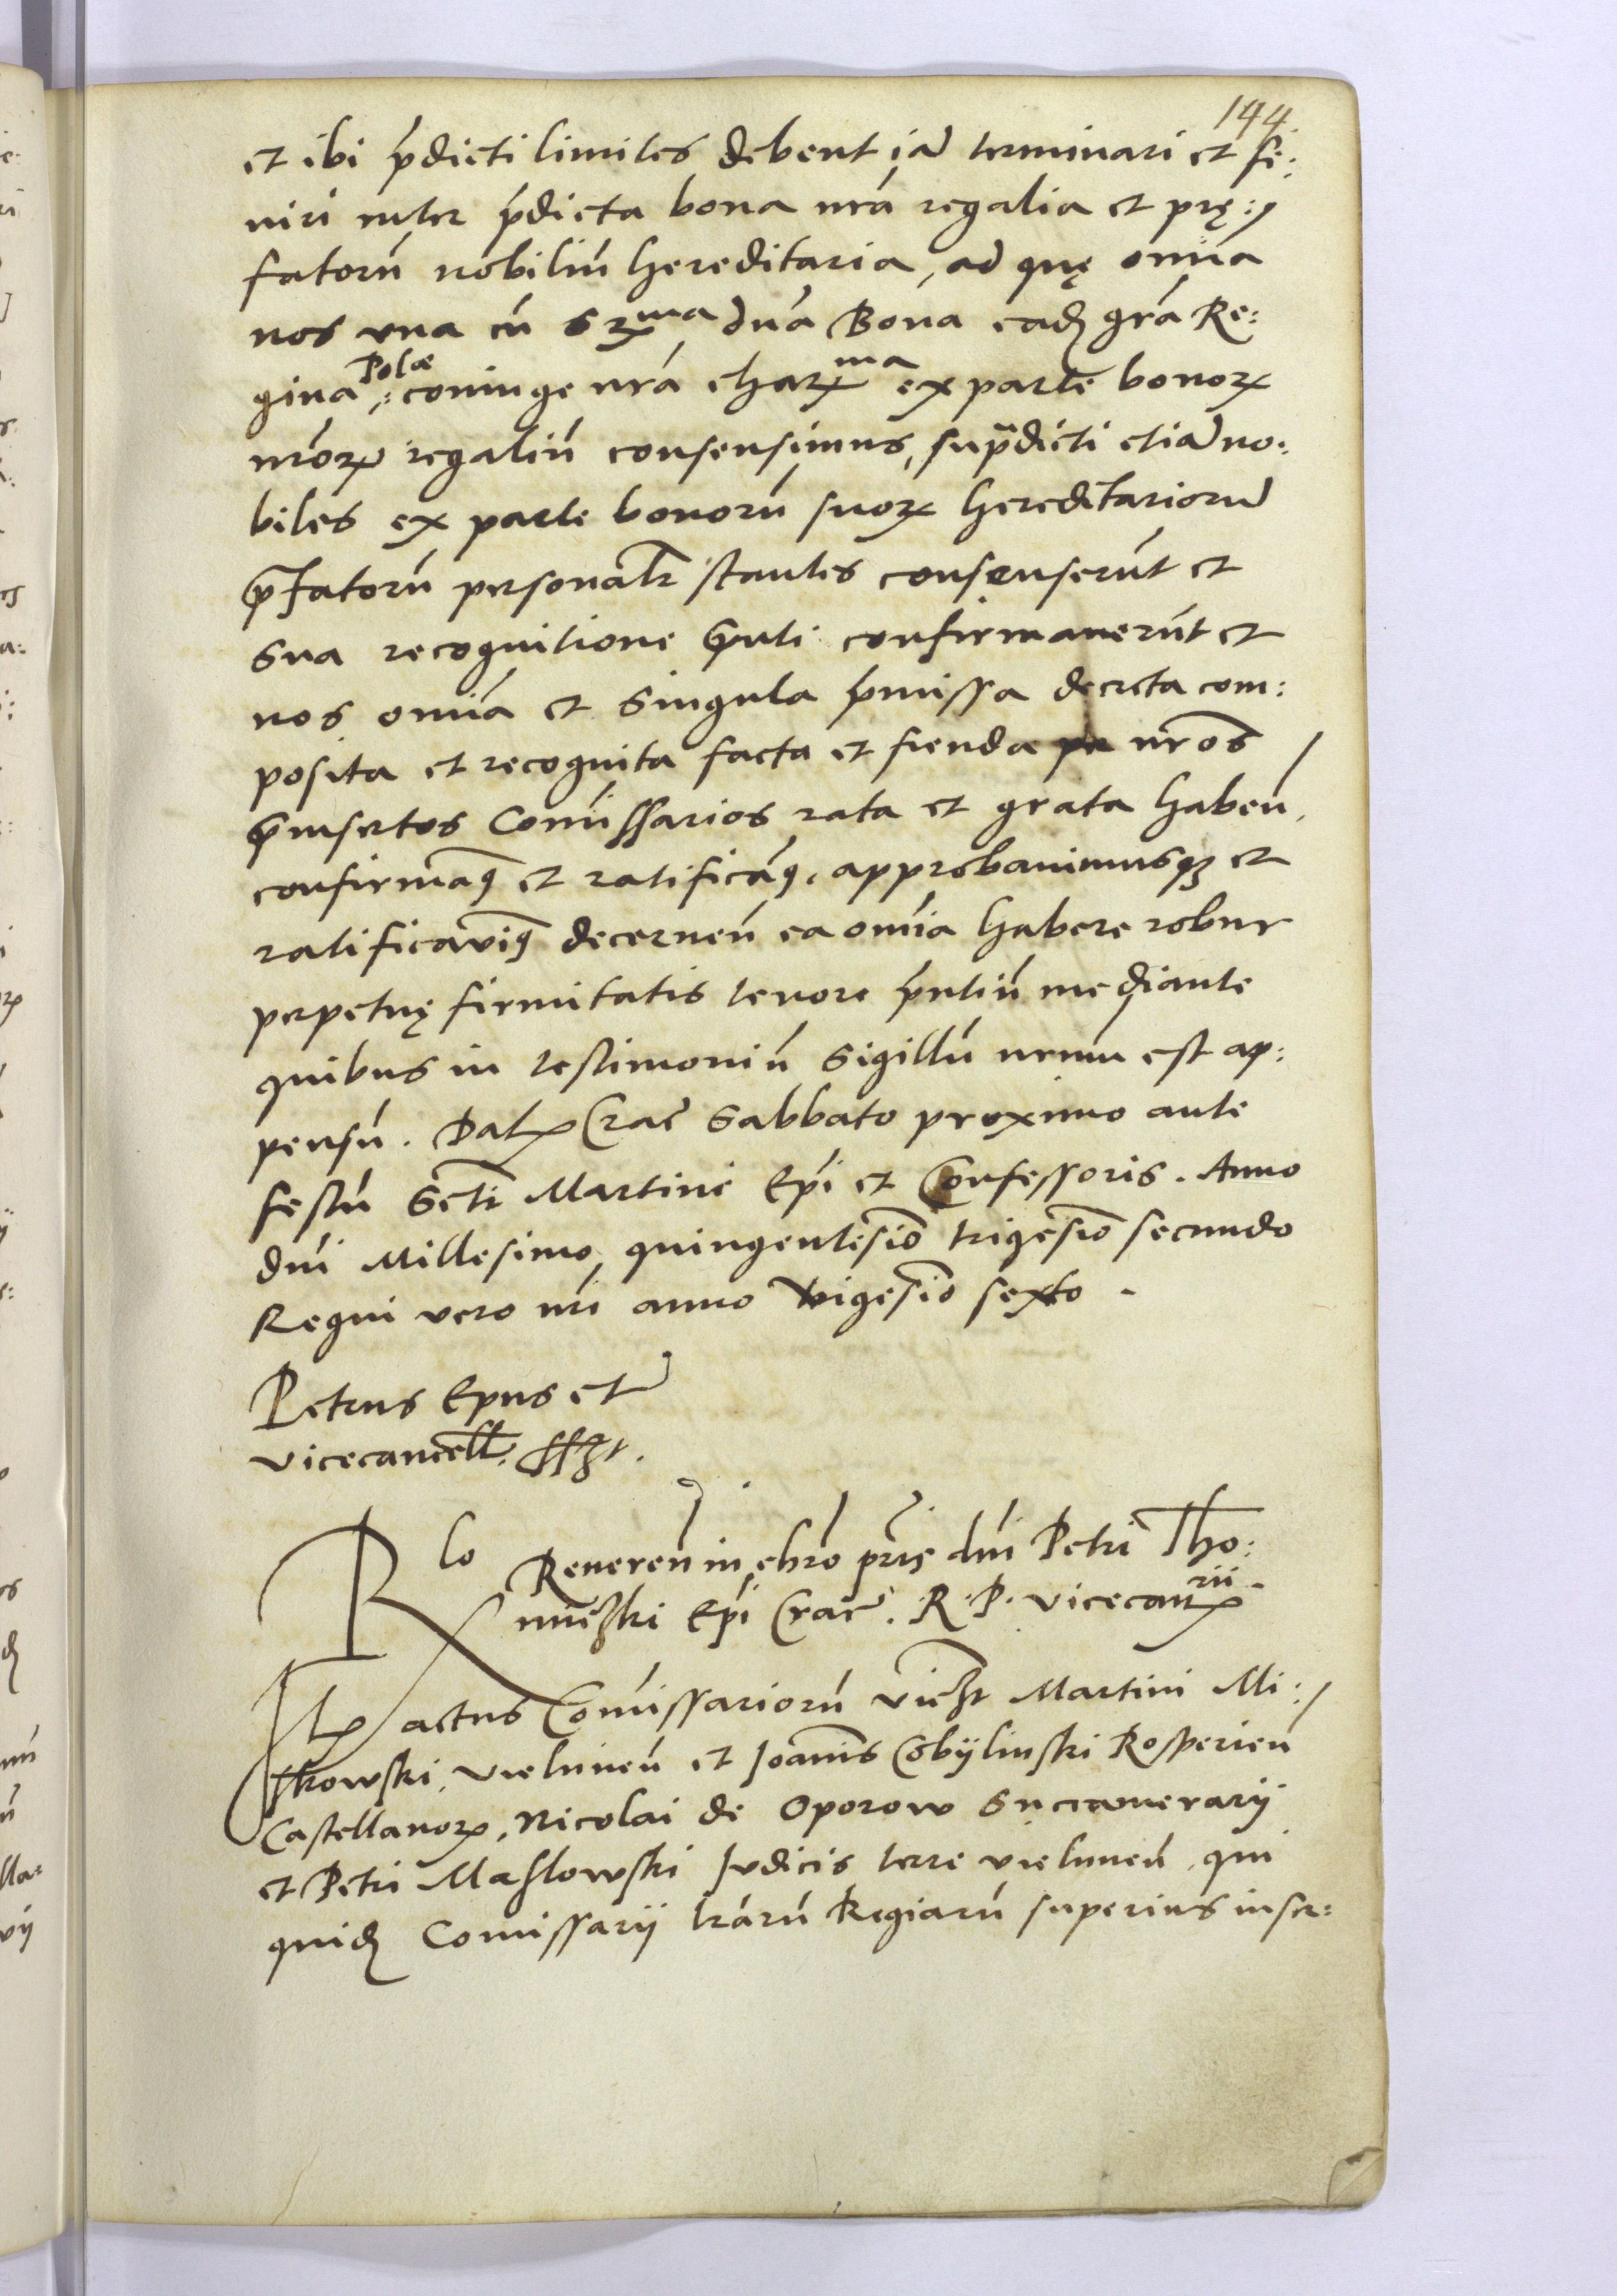 144.
et ibi p̄dicti limites debent iam terminari et fi:
niri inter p̄dicta bona nr̄a regalia et prę:
fatorū nobiliū hereditaria, ad quę om̄ia
nos vna cū Serma dn̄a Bona eadē gr̄a Re:
gina Polæ coniuge nr̄a charma ex parte bonorꝝ
nr̄orꝝ regaliū consensimus, supradicti etiam no:
biles ex parte bonorū suorꝝ hereditariorum
p̄fatorū personalr̄ stantes consenserūt et
sua recognitione p̄nti confirmauerūt et
nos om̄ia et singula p̄missa decreta com:
posita et recognita facta et fienda per nr̄os
p̄insertos Com̄issarios rata et grata haben̄,
confirmāꝗ et ratificāꝗ, approbauimusqꝫ et
ratificavimꝗ decernen̄ ea om̄ia habere robur
perpetuę firmitatis tenore p̄ntiū mediante
quibus in testimoniū sigillū nrm̄ est ap:
pensū. Datꝭ Crac̄ Sabbato proximo ante
festū Sc̄ti Martini Ep̄i et Confessoris. Anno
dn̄i Millesimo quingentesīo trigesīo secundo
Regni vero nr̄i anno vigesīo sexto.
Petrus Ep̄us et
vicecancell. sszt.
Rlo Reueren̄ in chr̄o pr̄is dn̄i Petri Tho:
miczki Ep̄i Crac̄. R. P. vicecantꝭrii.
Itꝭ actus Com̄issariorū vidzt Martini Mi:
szkowski, vielunen̄ et Joannis Cobÿlinski Rosperien̄
Castellanorꝝ, Nicolai de Oporow Succamerarÿ
et Petri Maslowski Judicis terre vielunen̄, qui
quidē Comissarÿ lr̄arū Regiarū superius inser: